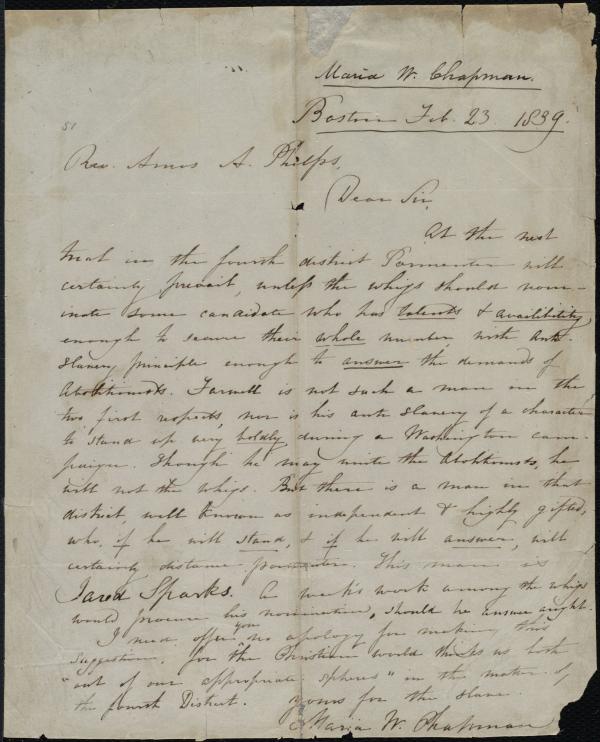 Maria W. Chapman.
Boston Feb. 23 1839.
51
Rev. Amos A. Phelps,
Dear Sir,
At the next
trial in the fourth district Parmenter will
certainly prevail, unless the whigs should nom-
inate some candidate who has talents & availibility
enough to secure their whole number, with anti-
slavery principle enough to answer the demands of
Abolitionists. Farwell is not such a man in the
two first respects, nor is his anti slavery of a character
to stand up very boldly during a Washington cam-
paign. Though he may unite the Abolitionists, he
will not the whigs. But there is a man in that
district, well known as independent & highly gifted,
who, if he will stand, & if he will answer, will
certainly distance Parmenter. This man is
Jared Sparks. A week's work among the whigs
would procure his nomination, should he answer aright.
I need offer you no apology for making this
suggestion, for the Christian world thinks us both
"out of our appropriate spheres" in the matter of
the fourth District. Yours for the slave.
Maria W. Chapman